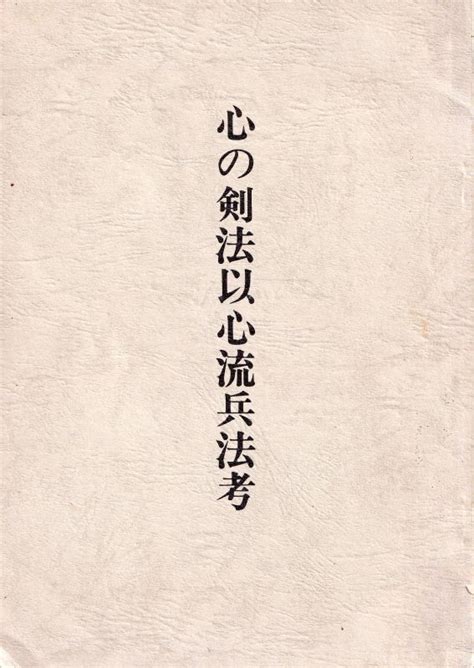 心の剣法以心流兵法考